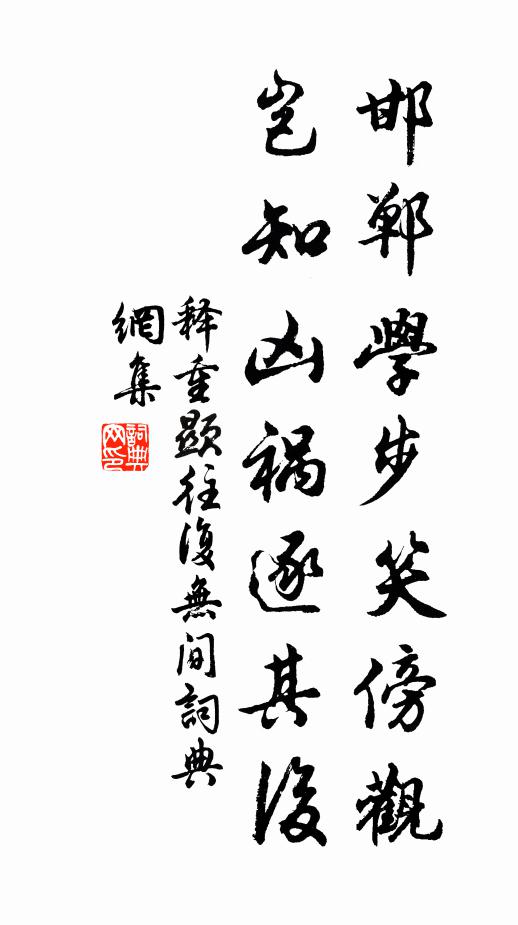 邯鄲學步笑傍觀
豈知凶禍逐其後
释重顯往復無間詞典
網集
詞典
网印